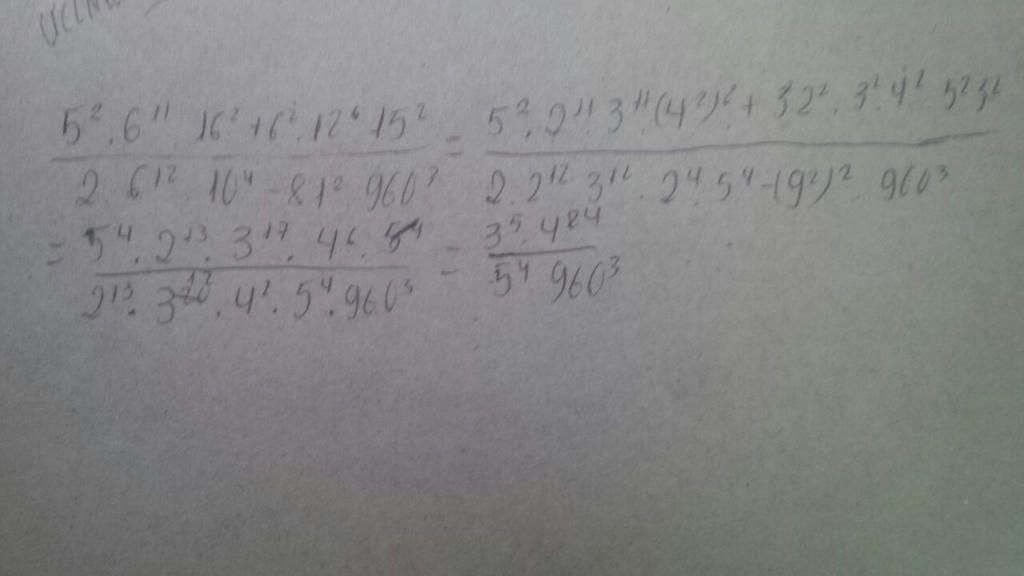 5² · 6¹¹ · 16² + 6² · 12⁶ · 15² / 2 · 6¹² · 10⁴ - 81² · 960³ = 5² · 2¹¹ · 3¹¹ (4²)² + 3 2² · 3² · 4² · 5² 3² / 2 · 2¹² 3¹² · 2⁴ 5⁴ - (9²)² · 960³
= 5⁴ · 2¹³ · 3¹⁷ · 4⁶ · / 2¹³ · 3 · 4² · 5⁴ · 960³ = 3⁵ · 4 / 5⁴ 960³